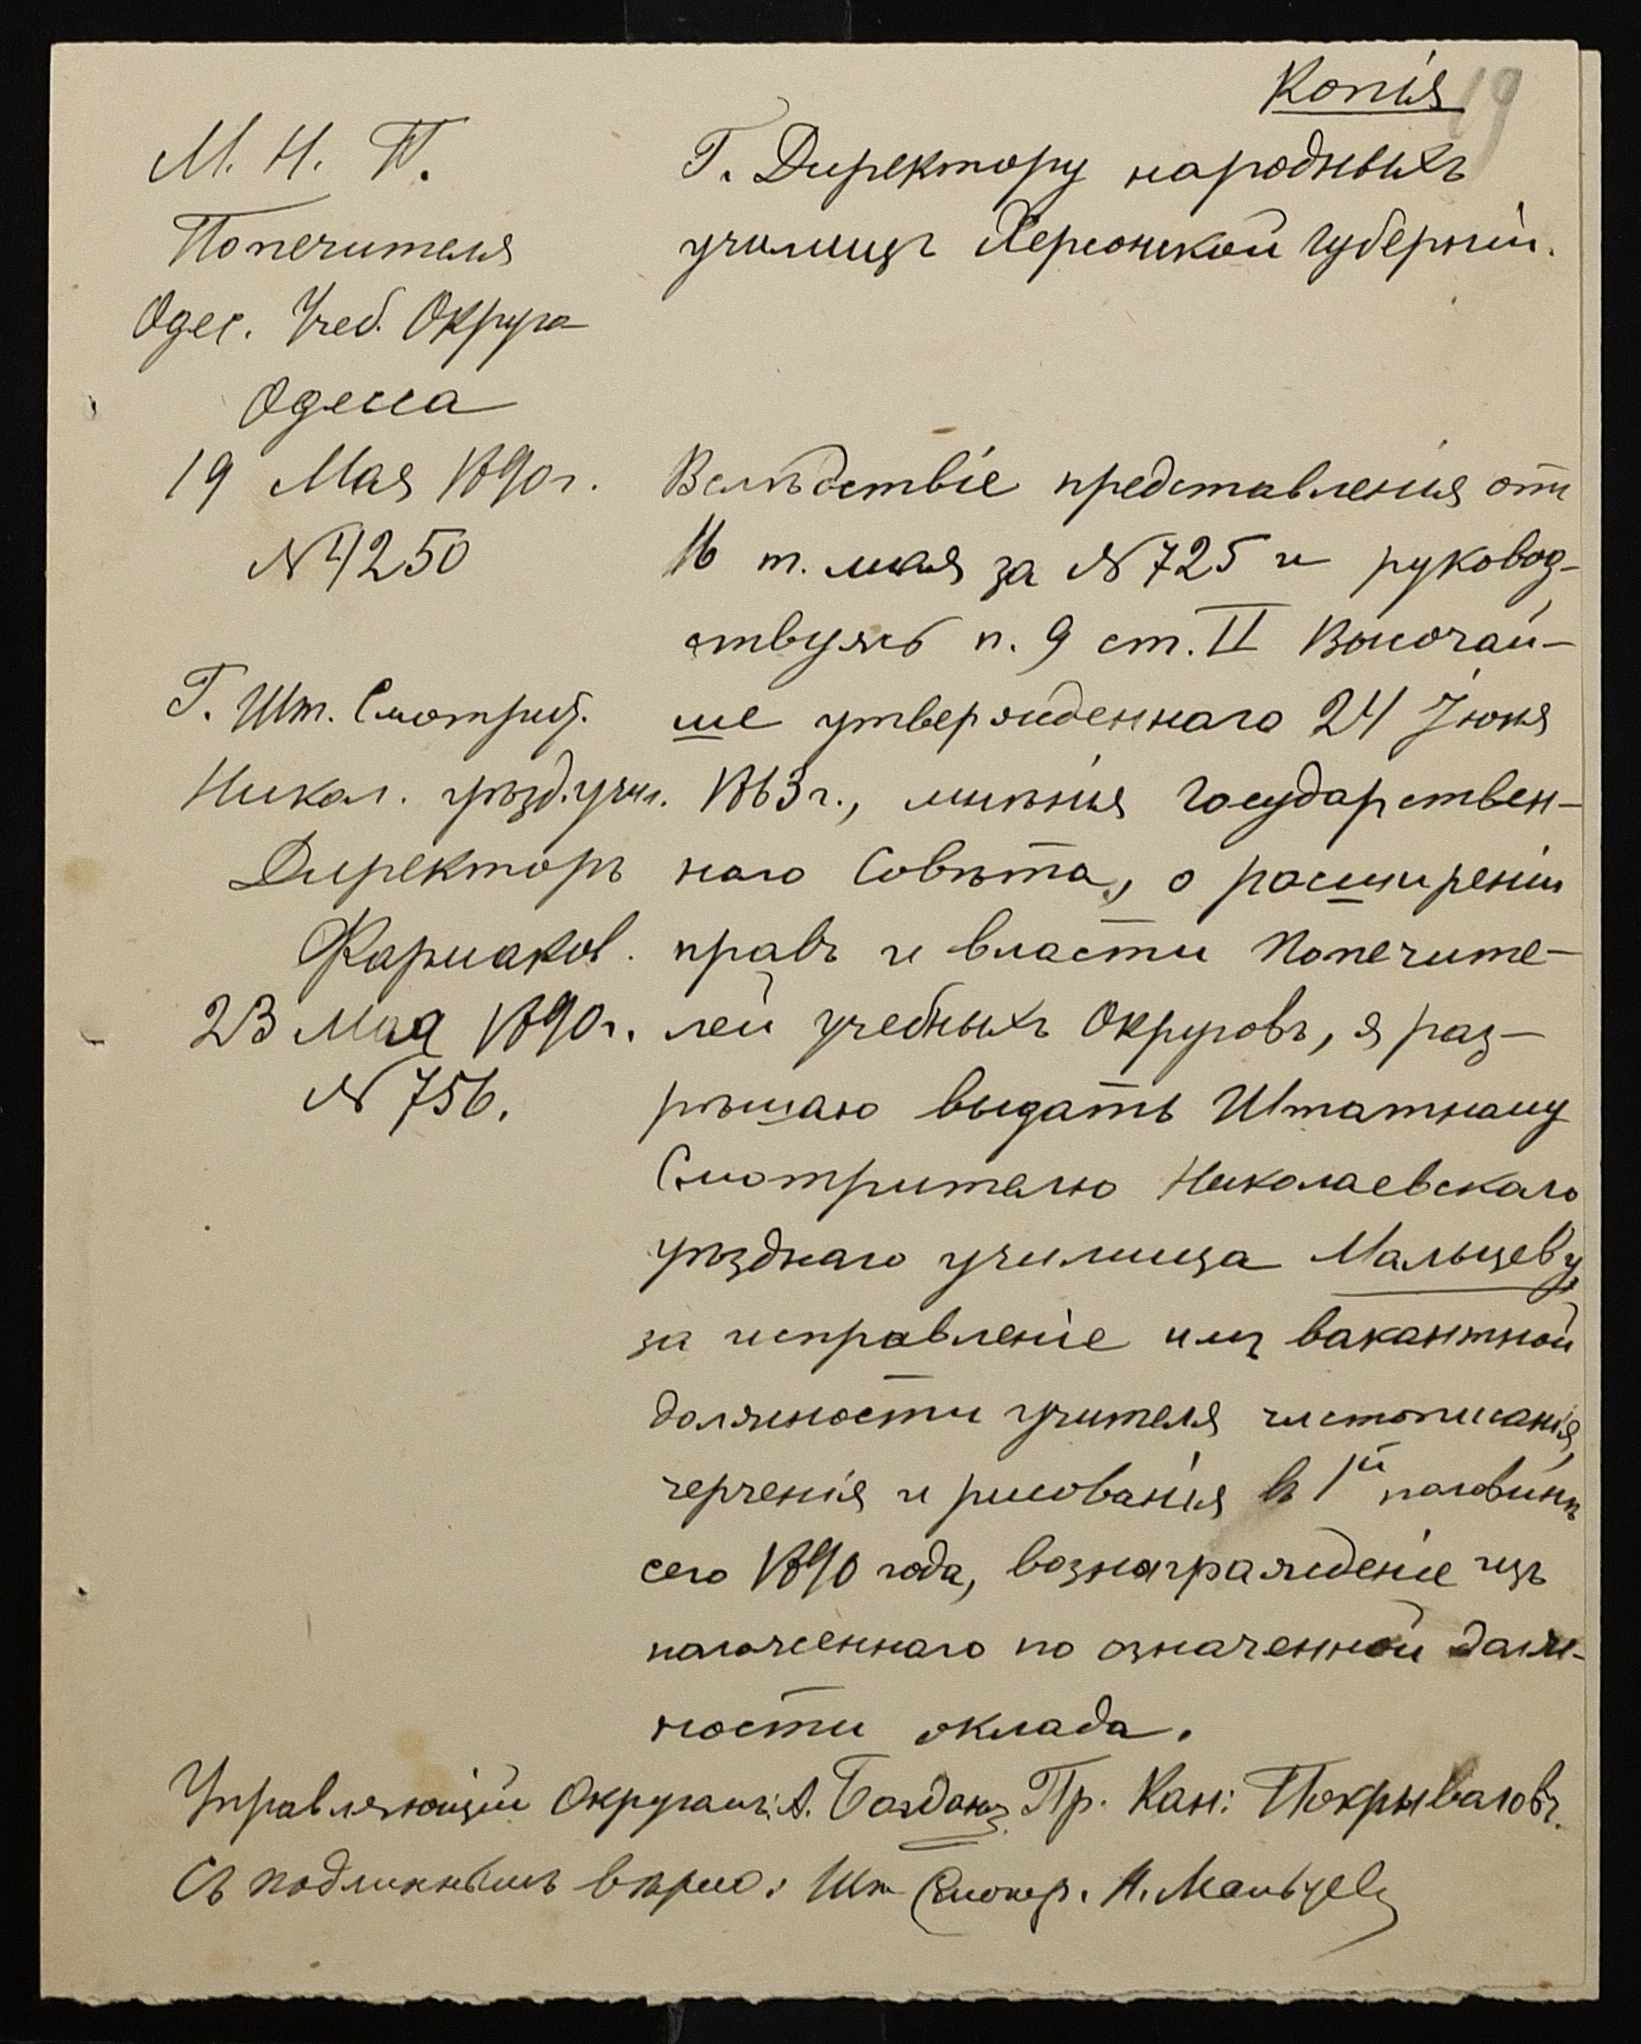 Копія
19
М. Н. П.
Попечителя
Одес. Учеб. Округа
Одесса
19 Мая 1890 г.
№ 4250
Г. Шт. Смотрит.
Никол. уѣзд. учил.
Директоръ
Фармаков.
23 Мая 1890 г.
№ 756.
Г. Директору народныхъ
училищъ Херсонской Губерніи.
Вслѣдствіе представленія отъ
16 т. мая за № 725 и руковод-
ствуясь п. 9 ст. II Высочай-
ше утвержденнаго 24 Іюня
1863 г., мнѣнія Государствен-
наго Совѣта, о расширеніи
правъ и власти Попечите-
лей учебныхъ Округовъ, я раз-
рѣшаю выдать Штатному
Смотрителю Николаевскаго
уѣзднаго училища Мальцеву,
за исправленіе имъ вакантной
должности учителя чистописанія,
черченія и рисованія въ 1й половинѣ
сего 1890 года, вознагражденіе изъ
положеннаго по означенной долж-
ности оклада.
Управляющій Округомъ: А. Пр. Кан: Покрываловъ.
Съ подлиннымъ вѣрно: Шт Смотр. А. Мальцевъ